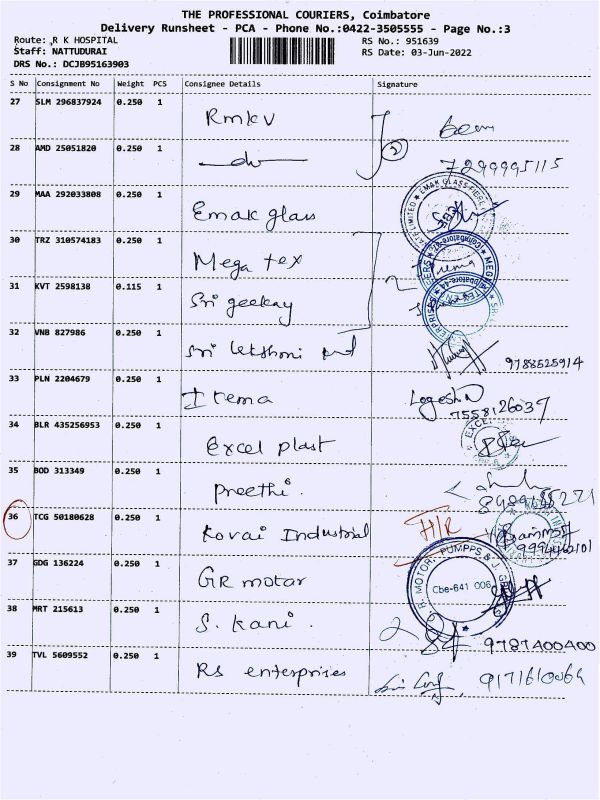 THE PROFESSIONAL COURIERS, Coimbatore
Delivery Runsheet - PCA - Phone No.:0422-3505555 - Page No.:3
Route: R K HOSPITAL
RS No.: 951639
Staff: NATTUDURAI
RS Date: 03-Jun-2022
DRS No.: DCJB95163903
S No Consignment No Weight PCS Consignee Details Signature
27 SLM 296837924 0.250 1 Rmkv
28 AMD 25051820 0.250 1 -do- 2 7299995115
29 MAA 292033808 0.250 1 Emak glass EMAK GLASS
30 TRZ 310574183 0.250 1 Mega tex MEGA TEX
31 KVT 2598138 0.115 1 Sri geekay 2
32 VNB 827986 0.250 1 Sri lekshmi 9788525914
33 PLN 2204679 0.250 1 Irema Logesh N
7558126037
34 BLR 435256953 0.250 1 Excel plast EXCEL
35 BOD 313349 0.250 1 Preethi.
36 TCG 50180628 0.250 1 Kovai Industrial H/R
9994462101
37 GDG 136224 0.250 1 GR motor R. MOTOR, PUMPPS & J.
Cbe-641 006
38 MRT 215613 0.250 1 S. kani. 2 9787400400
39 TVL 5609552 0.250 1 RS enterprises 9171610064